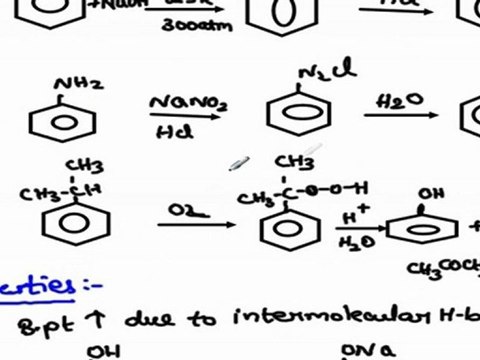 300atm
NH2
NaNO2
HCl
N2Cl
H2O
CH3
CH3-CH
O2
CH3
CH3-C-O-O-H
H+
H2O
OH
CH3COCH
erties:-
B.pt ↑ due to intermolecular H-b
OH
ONa